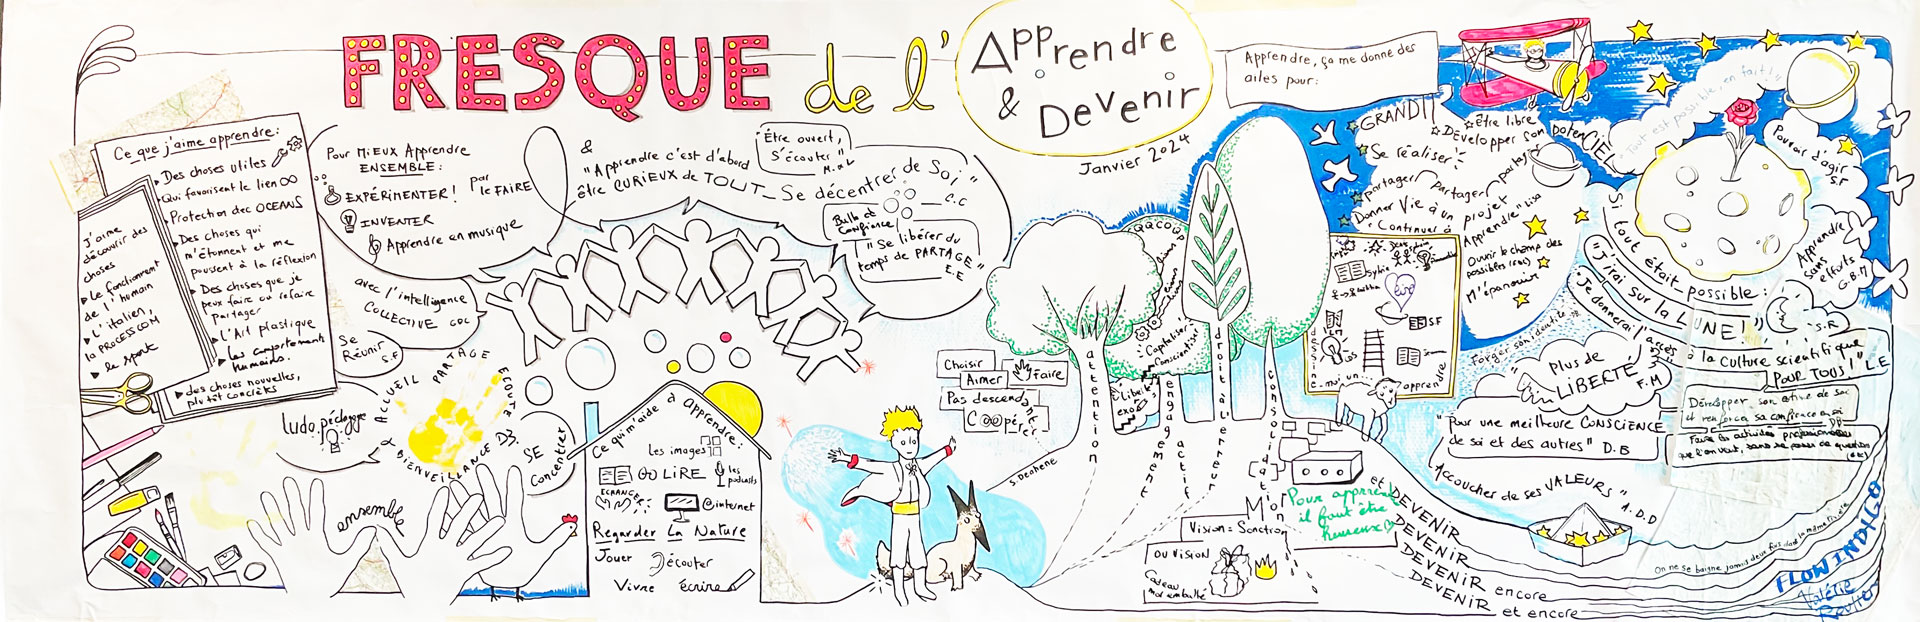 FRESQUE de l'
Apprendre
& Devenir
Janvier 2024
Ce que j'aime apprendre:
Des choses utiles
Qui favorisent le lien
Protection des OCEANS
Des choses qui
m'étonnent et me
poussent à la réflexion
Des choses que je
peux faire ou refaire
partager
L'Art plastique
les comportements
humains.
des choses nouvelles,
plutôt concrètes
J'aime
découvrir des
choses
Le fonctionnement
de l'humain
L'italien,
la PROCESSCOM
le sport
Pour MIEUX Apprendre
ENSEMBLE:
EXPÉRIMENTER! par
le FAIRE
INVENTER
Apprendre en musique
avec l'intelligence
COLLECTIVE
Se
Réunir
S.F
&
"Apprendre c'est d'abord
être CURIEUX de TOUT_Se décentrer de Soi"
C.C
Être ouvert,
S'écouter"
Bulle de
Confiance
"Se libérer du
temps de PARTAGE"
E.E
ludo.pédagogie
ACCUEIL PARTAGE ECOUTE
& BIENVEILLANCE D3.
SE
Concentrer
ensemble
Ce qui m'aide à apprendre:
Les images
LiRE
les
podcasts
ECHANGER
@internet
Regarder La Nature
Jouer
écouter
Vivre
écrire
Choisir
Aimer
faire
Pas descendance
C@@pérer
S. Dechene
attention
engagement actif
droit à l'erreur
consolidation
Capitaliser
Vision = Sanction
OU VISION
Cadeau
mal emballé
Pour apprendre
il faut être
heureuse
Apprendre, ça me donne des
ailes pour:
GRANDIR
être libre
Développer son potenCIEL
Se réaliser
partager partager partager
Donner Vie à un projet
"Continuer à
Apprendre" Lisa
Ouvrir le champ des
possibles (rêves)
M'épanouir
Forger son identité
apprendre
S.F
"Tout est possible, en fait!"
Pouvoir d'agir
S.F
Apprendre
sans
efforts
G.B.M
Si tout était possible:
"J'irai sur la LUNE!"
S.R
"Je donnerai l'accès
à la Culture scientifique
POUR TOUS!" L.E
Plus de
LIBERTÉ
F.M
"Pour une meilleure CONSCIENCE
de soi et des autres" D.B
Développer son estime de soi
et renforcer sa confiance en soi
Accoucher de ses VALEURS"
A.D.D
et DEVENIR
DEVENIR
DEVENIR
DEVENIR encore
DEVENIR et encore
On ne se baigne jamais deux fois dans la même rivière
FLOWINDIGO
Valérie